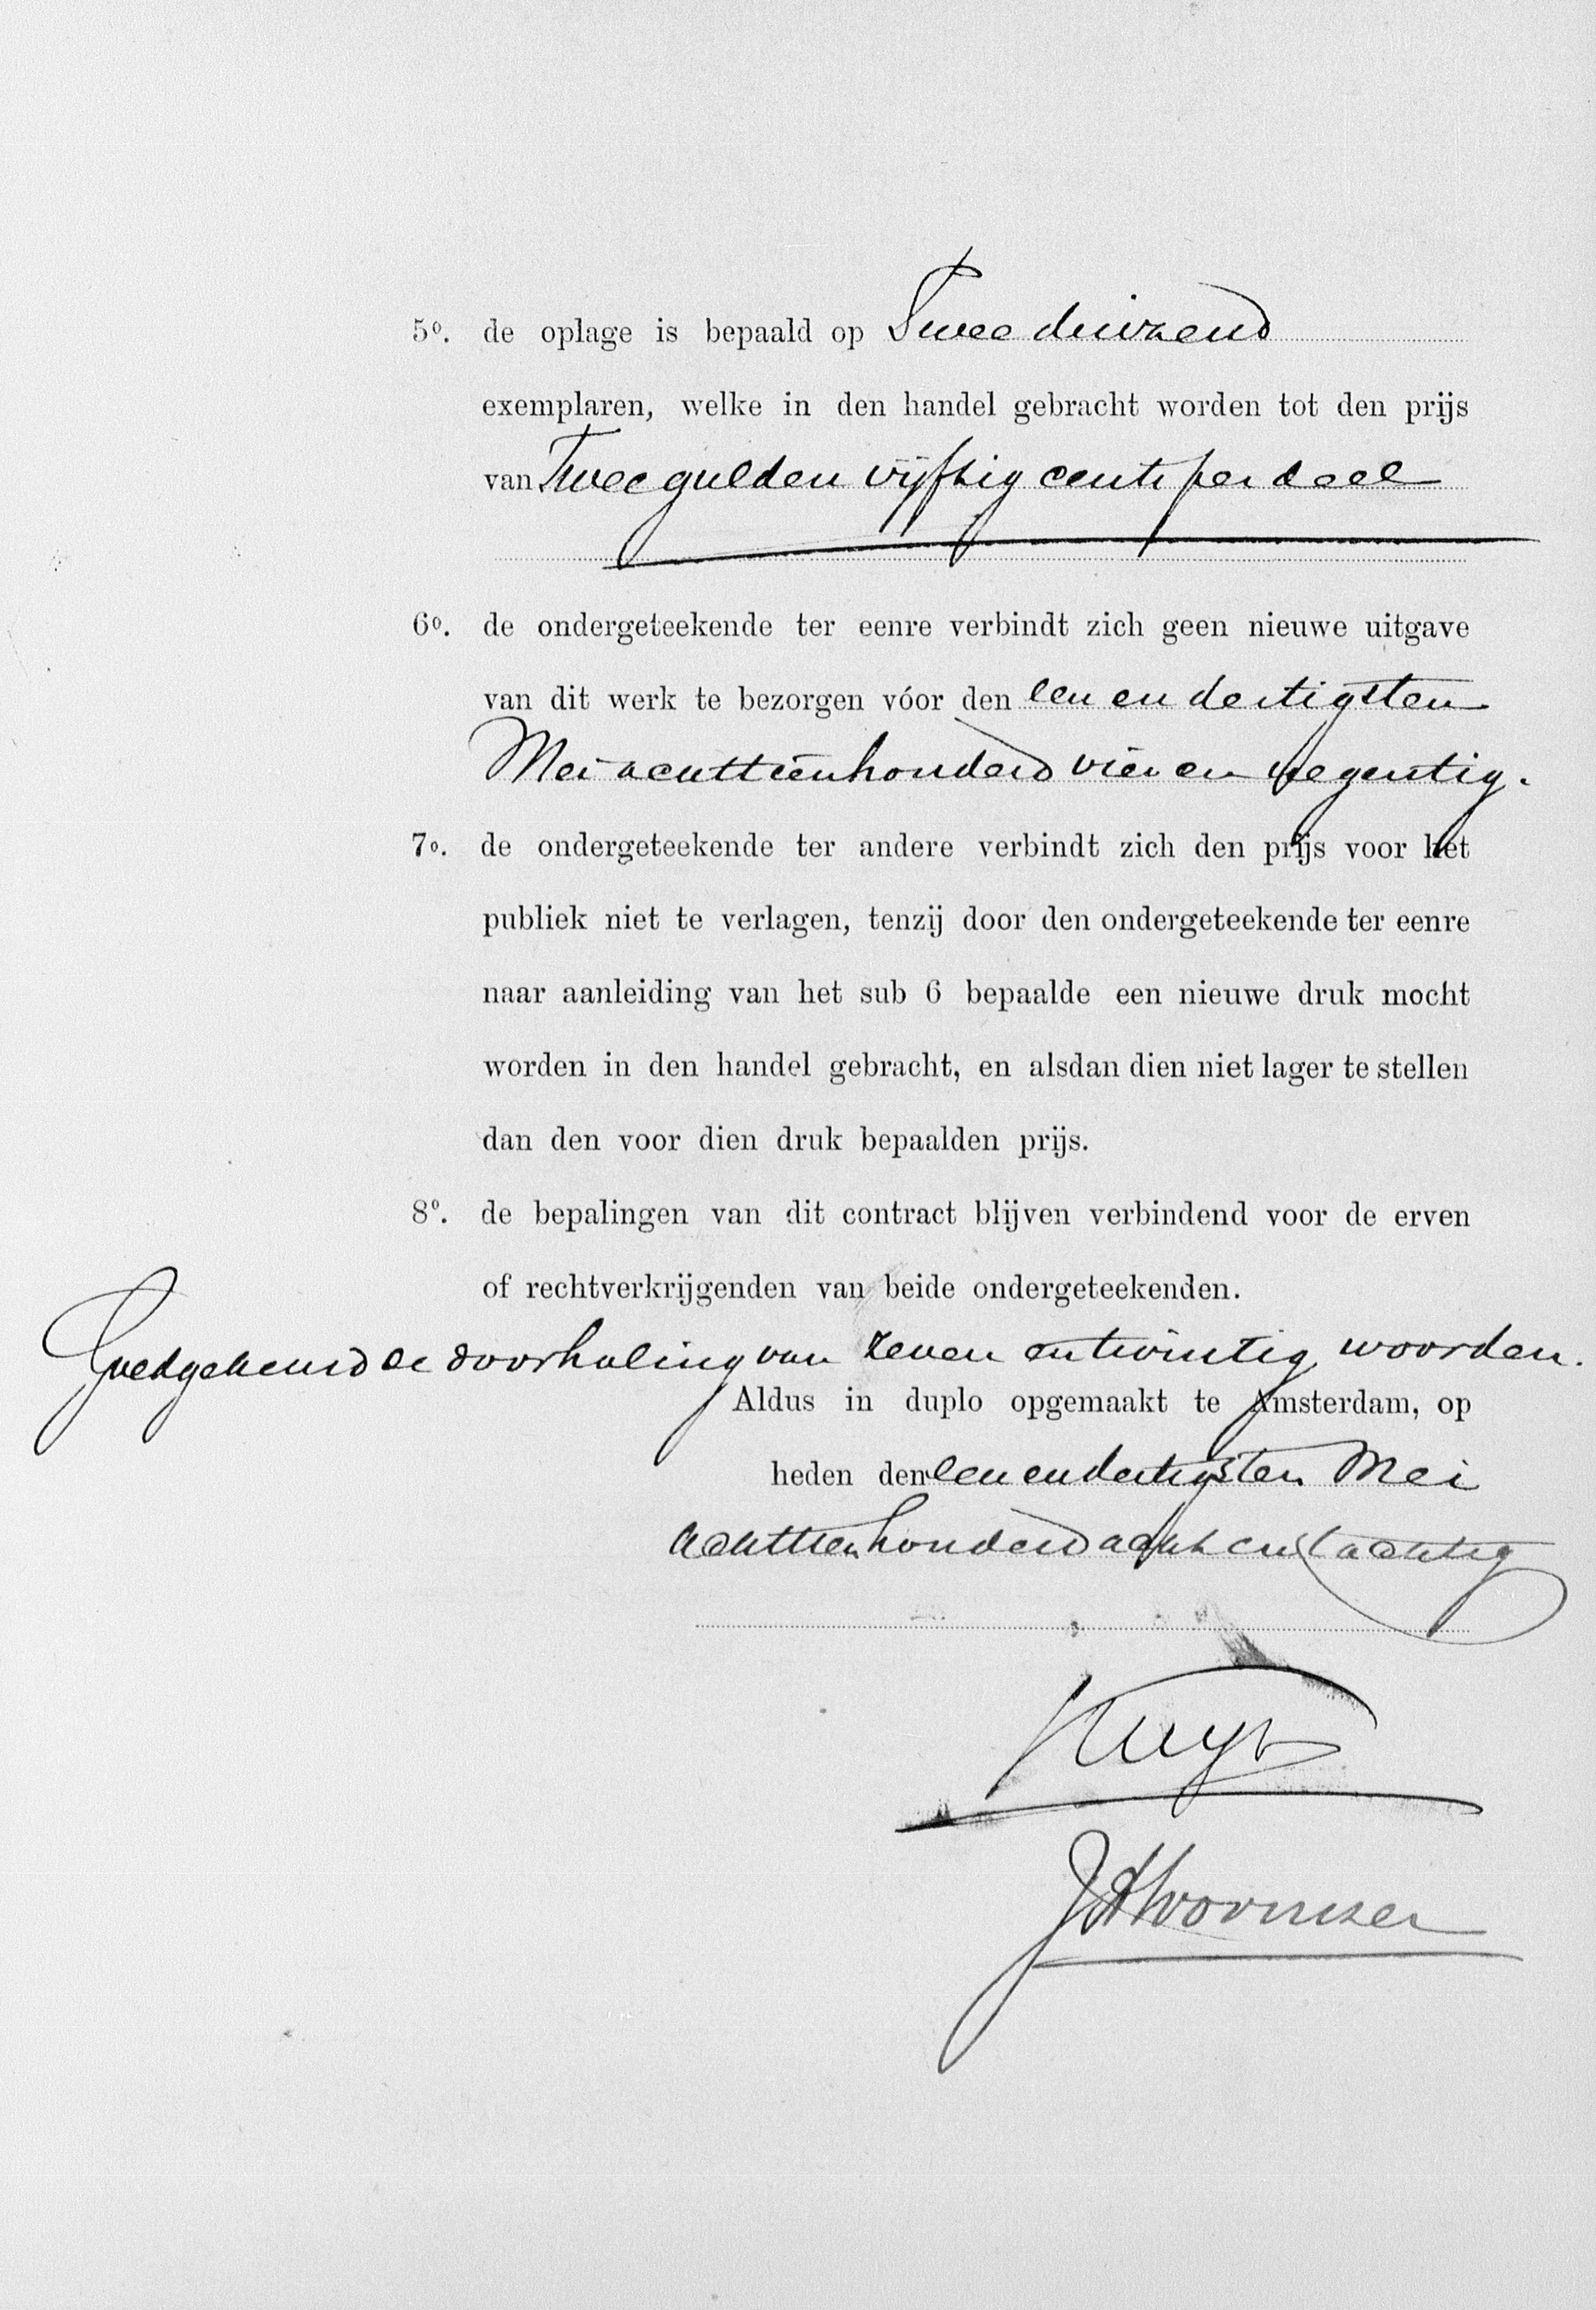 5º. de oplage is bepaald op Twee duizend
exemplaren, welke in den handel gebracht worden tot den prijs
van Twee gulden vijftig cents per deel
6º. de ondergeteekende ter eenre verbindt zich geen nieuwe uitgave
van dit werk te bezorgen vóor den een en dertigsten
Mei achttienhonderd vier en negentig.
7º. de ondergeteekende ter andere verbindt zich den prijs voor het
publiek niet te verlagen, tenzij door den ondergeteekende ter eenre
naar aanleiding van het sub 6 bepaalde een nieuwe druk mocht
worden in den handel gebracht, en alsdan dien niet lager te stellen
dan den voor dien druk bepaalden prijs.
8º. de bepalingen van dit contract blijven verbindend voor de erven
of rechtverkrijgenden van beide ondergeteekenden.
Goedgekeurd de doorhaling van zeven en twintig woorden.
Aldus in duplo opgemaakt te Amsterdam, op
heden den een en dertigsten Mei
achttienhonderd acht en tachtig
Kuyper
JAWormser